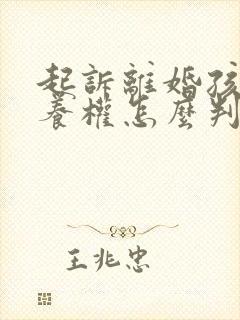 起訴離婚孩
養權怎麼判
王兆忠